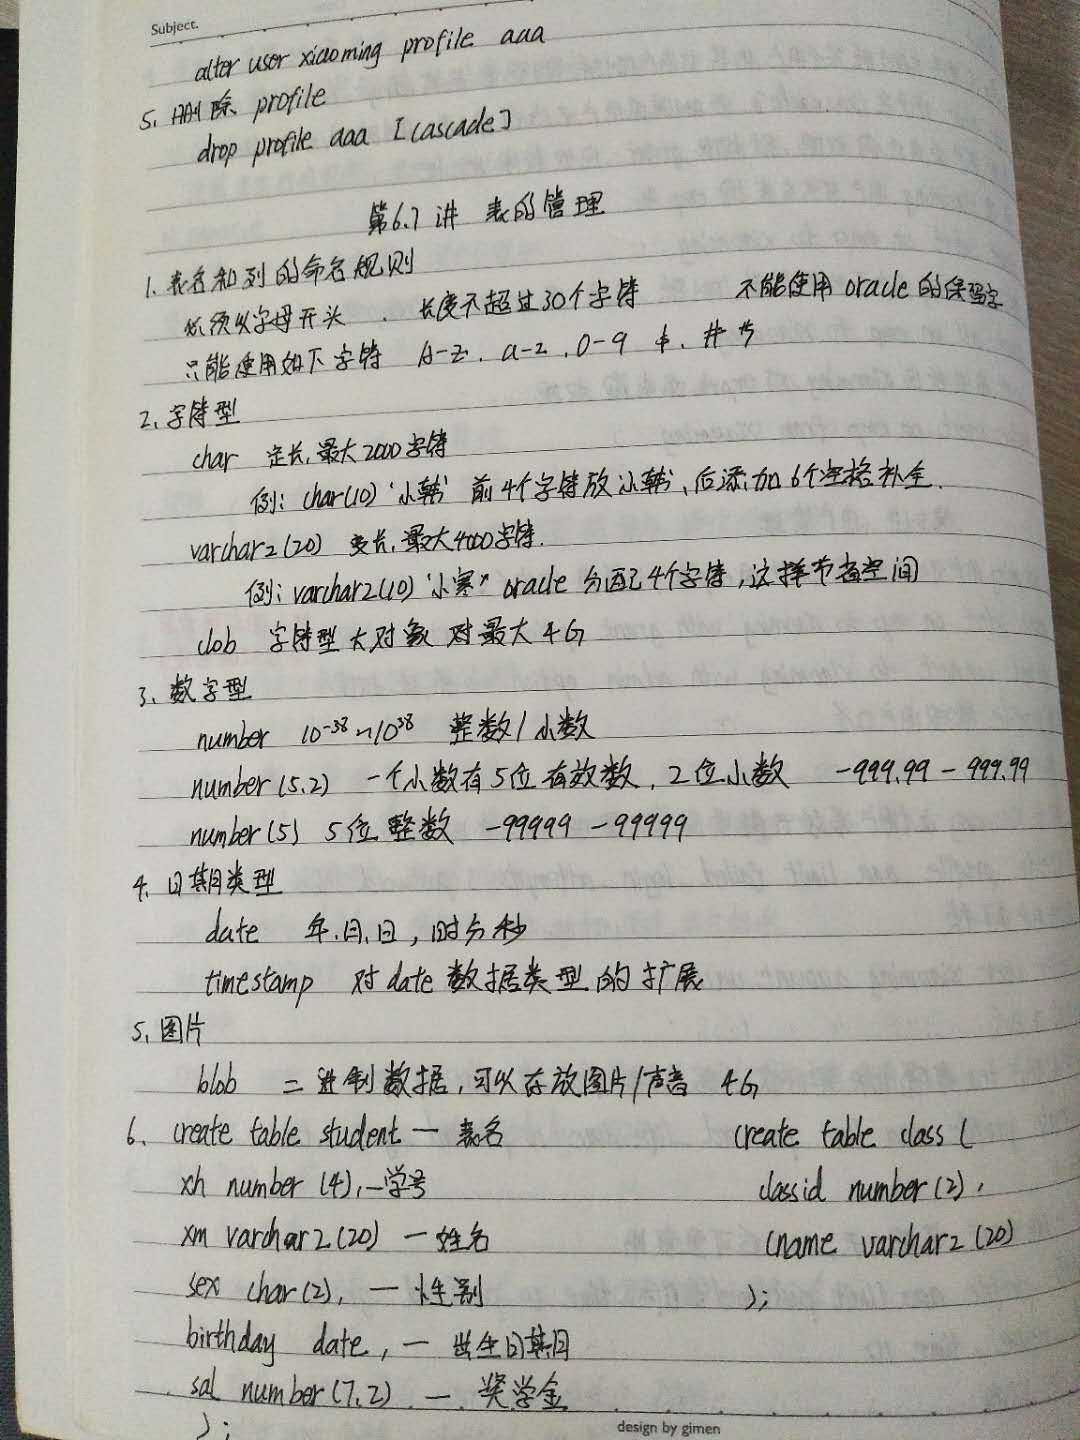 Subject.
alter user xiaoming profile aaa
5. 删除 profile
drop profile aaa [cascade]
第6.7讲 表的管理
1. 表名和列的命名规则
必须以字母开头 . 长度不超过30个字符 不能使用 oracle 的保留字
只能使用如下字符 A-Z. a-z. 0-9 $. # 等
2. 字符型
char 定长,最大2000字符
例: char(10) '小韩' 前4个字符放小韩,后添加6个空格补全.
varchar2(20) 变长,最大4000字符.
例: varchar2(10) '小寒" oracle 分配4个字符,这样节省空间
clob 字符型大对象 对最大4G
3. 数字型
number 10-38~1038 整数/小数
number(5.2) 一个小数有5位有效数, 2位小数 -999.99 - 999.99
number(5) 5位整数 -99999 - 99999
4. 日期类型
date 年.月.日, 时分秒
timestamp 对date数据类型的扩展
5. 图片
blob 二进制数据,可以存放图片/声音 4G
6. create table student — 表名
xh number (4), —学号
xm varchar2(20) —姓名
sex char(2), — 性别
birthday date, — 出生日期
sal number(7.2) — 奖学金
);
create table class (
classid number(2),
cname varchar2(20)
);
design by gimen